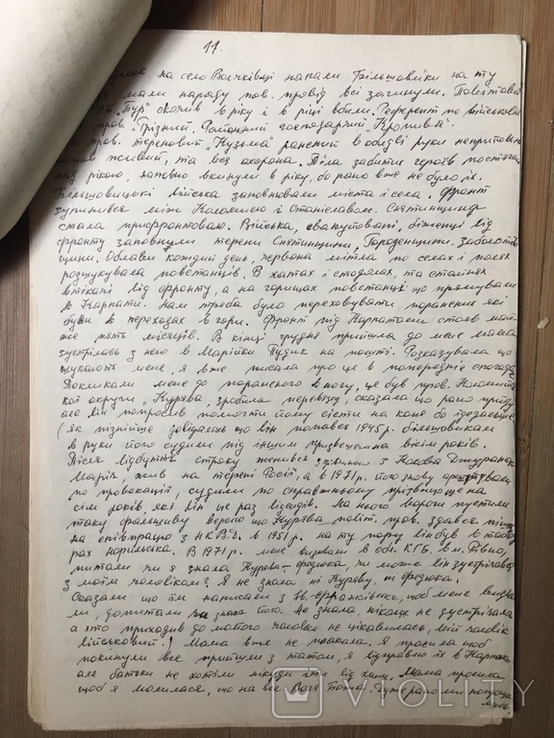 11.
на село Вовчківці напали більшовики на ту
мали нараду пов. провід всі загинули. Повітовий
"Тур" скочив в ріку і в ріці вбили. Референт по військовій
пров. "Грізний". Районний господарчий "Кропива".
пров. тереновий "Кузьма" ранений в обидві руки
живий, та без охорони. Тіла забитих героїв
рікою, напевно вкинули в ріку, бо рано вже не було їх.
Більшовицькі війська заповнювали міста і села. Фронт
зупинився між Коломиєю і Станіславом. Снятинщина
стала прифронтовою. Війська, евакуйовані, біженці від
фронту заповнили терени Снятинщини, Городенщини, Заболотів
щини. Облави кожний день, червона мітла по селах і полях
розшукувала повстанців. В хатах і стодолах, та стайнях
втікачі від фронту, а на горищах повстанці що прямували
в Карпати. Нам треба було переховувати поранених які
були в переходах в гори. Фронт під Карпатами стояв май
же п'ять місяців. В кінці грудня прийшла до мене мама
зустрілась з нею в Марійки Пудик на пошті. Розказувала що
шукають мене, я вже писала про це в попередніх спогадах.
Покликали мене до пораненого в ногу, це був пров. Коломий
кої округи "Курява", зробила перевязку, сказала що рано прийду
але він попросив помогти йому сісти на коня бо їде дальше.
(як пізніше довідалась що він попався 1945р. більшовикам
в руки його судили під іншим призвещем на вісім років.
Після відбуття строку женився з дівчиною з Нових Джуранок
Марія, жив на терені Росії, а в 1971р. його знову арештували
по провокації, судили по справжньому прізвищу на
сім років, які він ще раз відсидів. На нього вороги пустили
таку фальшиву версію що Курява політ. пров. здався
на співпрацю з Н.К.В.Д. в 1951р. на ту пору він був в табо
рах Норильська. В 1971р. мене визвали в обл. КГБ. в м. Рівно,
питали чи я знала Куряву - Федюка, чи може він зустрічався
з моїм чоловіком? Я не знала ні Куряву, ні Федюка.
Сказали що їм написали з Ів.-Франківська, щоб мене визва
ли, допитали чи знала його. Не знала, ніколи не зустрічала
а хто приходив до мого чоловіка не цікавилась, мій чоловік
військовий.! Мама вже не плакала. Я просила щоб
покинули все прийшли з татом, я відправлю їх в Карпати
але батьки не хотіли нікуди іти від хати. Мама просила
щоб я молилася, що на все Воля Божа. Дуже рано ми попроща
лись.
VIOLITY